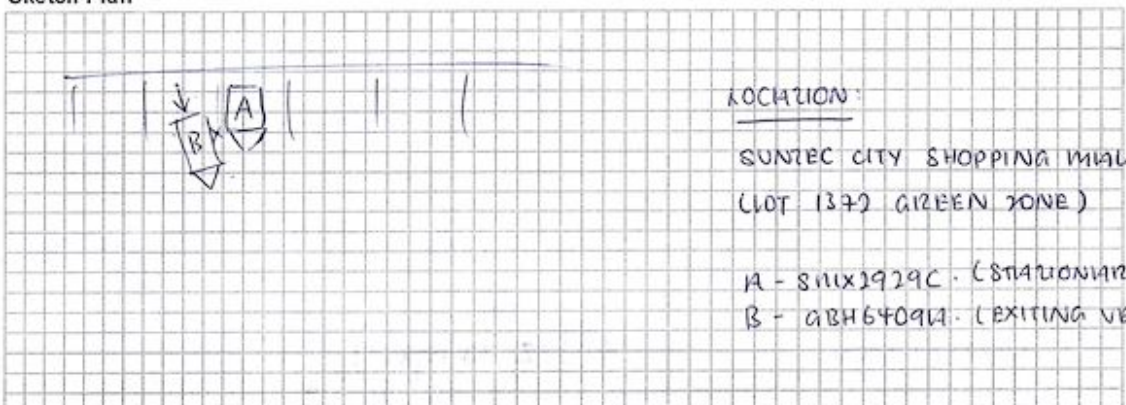 B
A
LOCATION:
SUNTEC CITY SHOPPING MAL
(LOT 1372 GREEN ZONE)
A - SMX2929C. (STATIONAR
B - GBH6409A. (EXITING VE